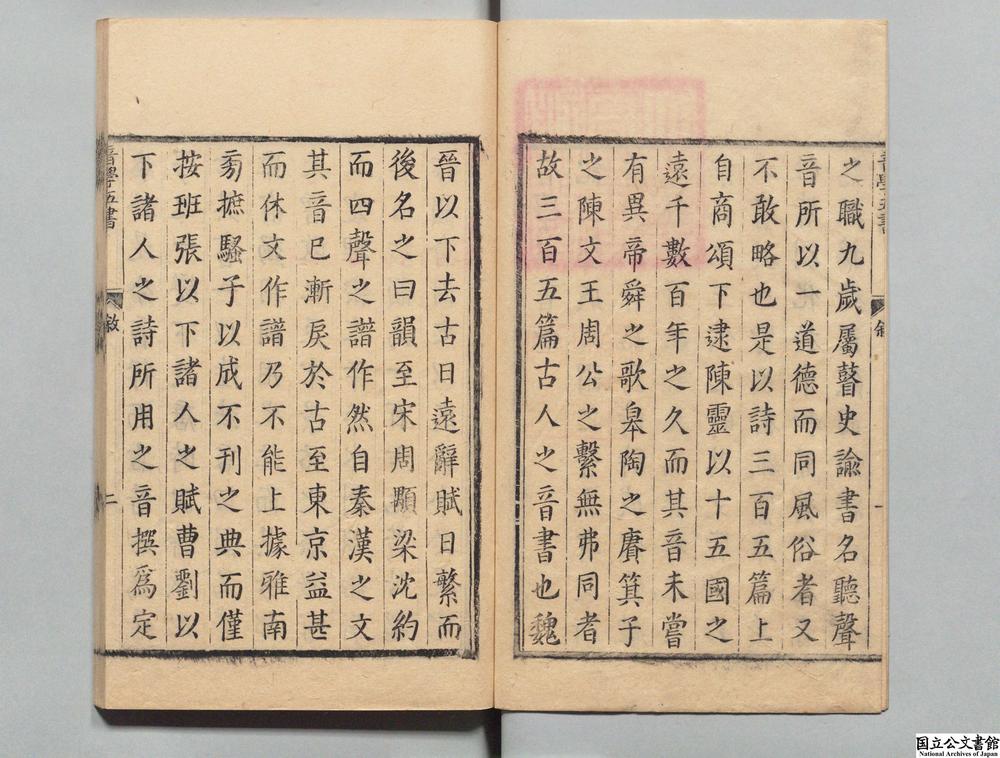 之職九歲屬瞽史諭書名聽聲
音所以一道德而同風俗者又
不敢略也是以詩三百五篇上
自商頌下逮陳靈以十五國之
遠千數百年之久而其音未嘗
有異帝舜之歌皋陶之賡箕子
之陳文王周公之繫無弗同者
故三百五篇古人之音書也魏
晉以下去古日遠辭賦日繁而
後名之曰韻至宋周顒梁沈約
而四聲之譜作然自秦漢之文
其音已漸戾於古至東京益甚
而休文作譜乃不能上據雅南
旁摭騷子以成不刊之典而僅
按班張以下諸人之賦曹劉以
下諸人之詩所用之音撰爲定
音學五書
敘
二
国立公文書館
National Archives of Japan